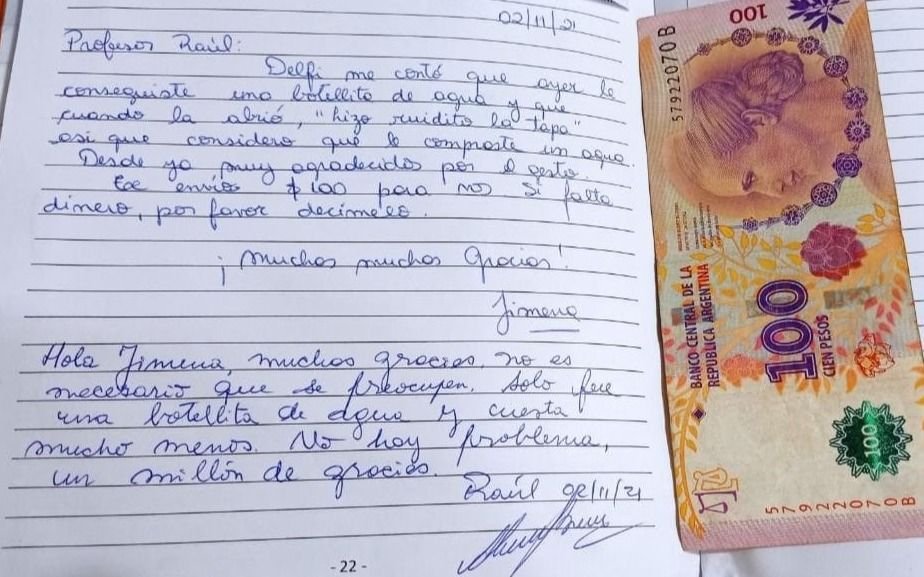 02/11/21
Profesor Raúl:
Delfi me contó que ayer le
conseguiste una botellita de agua y que
cuando la abrió, "hizo ruidito la tapa"
asi que considero que le compraste un agua.
Desde ya muy agradecidos por el gesto.
Te envío $100 para vos si falta
dinero, por favor decímelo.
¡Muchas muchas Gracias!
Jimena
Hola Jimena, muchas gracias no es
necesario que se preocupen. Solo fue
una botellita de agua y cuesta
mucho menos. No hay problema,
un millón de gracias.
Raúl 02/11/21
- 22 -
100
57922070 B
BANCO CENTRAL DE LA
REPUBLICA ARGENTINA
100
CIEN PESOS
100
57922070 B